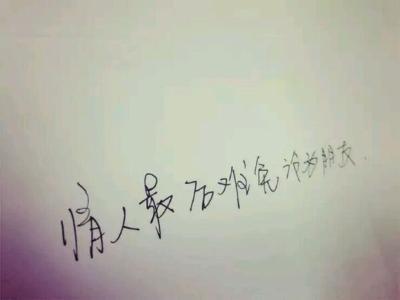 情人最后难免沦为朋友.